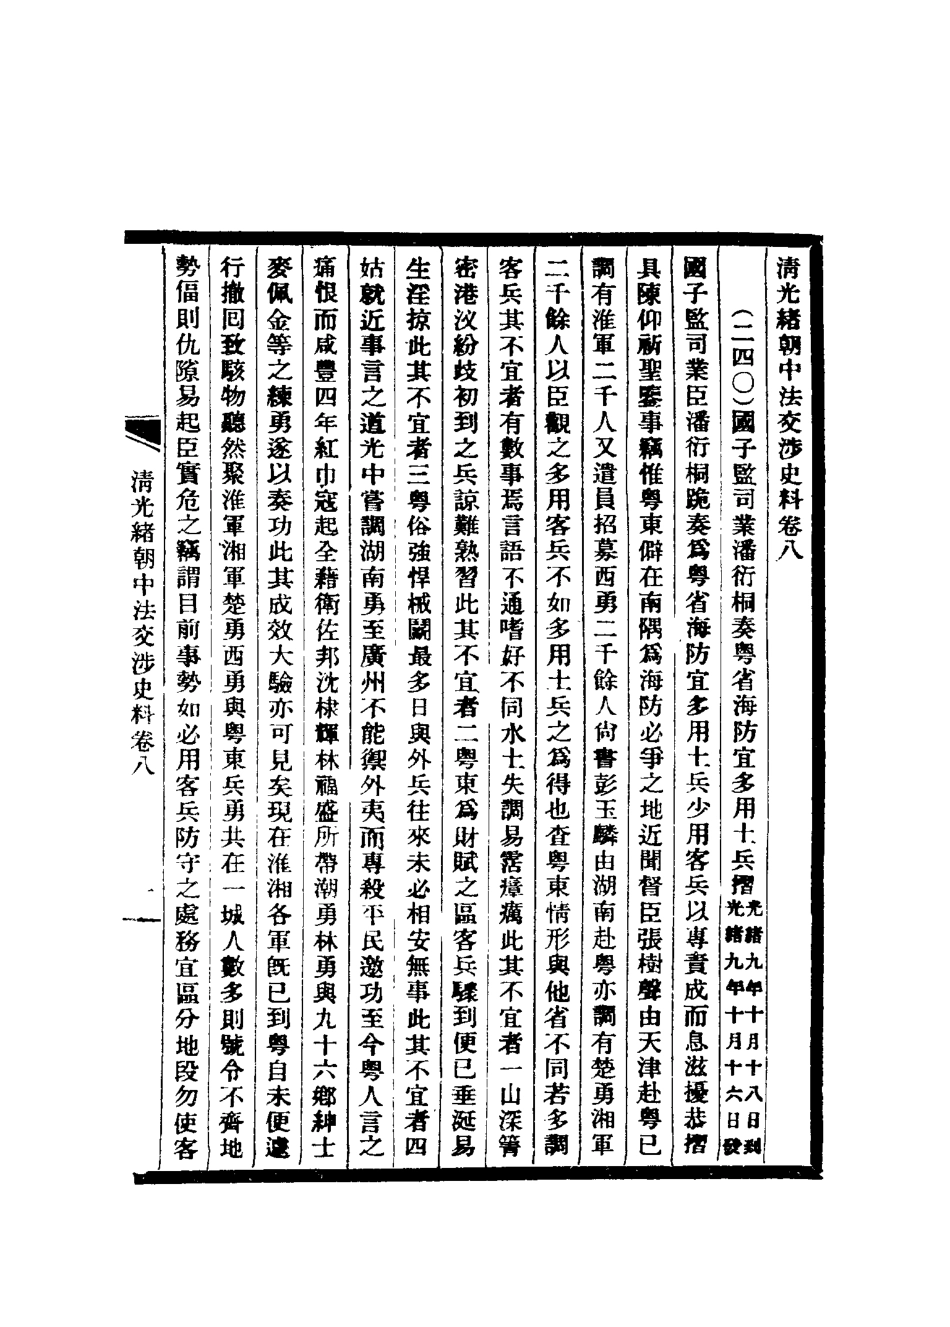 清光緒朝中法交涉史料卷八
(二四〇)國子監司業潘衍桐奏粤省海防宜多用土兵摺
光緒九年十月十八日到
光緒九年十月十六日發
國子監司業臣潘衍桐跪奏爲粤省海防宜多用土兵少用客兵以專責成而息滋擾恭摺
具陳仰祈聖鑒事竊惟粤東僻在南隅爲海防必爭之地近聞督臣張樹聲由天津赴粤已
調有淮軍二千人又遣員招募西勇二千餘人尙書彭玉麟由湖南赴粤亦調有楚勇湘軍
二千餘人以臣觀之多用客兵不如多用土兵之爲得也查粤東情形與他省不同若多調
客兵其不宜者有數事焉言語不通嗜好不同水土失調易霑瘴癘此其不宜者一山深箐
密港汊紛歧初到之兵諒難熟習此其不宜者二粤東爲財賦之區客兵驟到便已垂涎易
生淫掠此其不宜者三粤俗強悍械鬭最多日與外兵往來未必相安無事此其不宜者四
姑就近事言之道光中嘗調湖南勇至廣州不能禦外夷而專殺平民邀功至今粤人言之
痛恨而咸豐四年紅巾寇起全藉衛佐邦沈棣輝林福盛所帶潮勇林勇與九十六鄕紳士
麥佩金等之練勇遂以奏功此其成效大驗亦可見矣現在淮湘各軍旣已到粤自未便遽
行撤囘致駭物聽然聚淮軍湘軍楚勇西勇與粤東兵勇共在一城人數多則號令不齊地
勢偪則仇隙易起臣實危之竊謂目前事勢如必用客兵防守之處務宜區分地段勿使客
清光緒朝中法交涉史料卷八
一